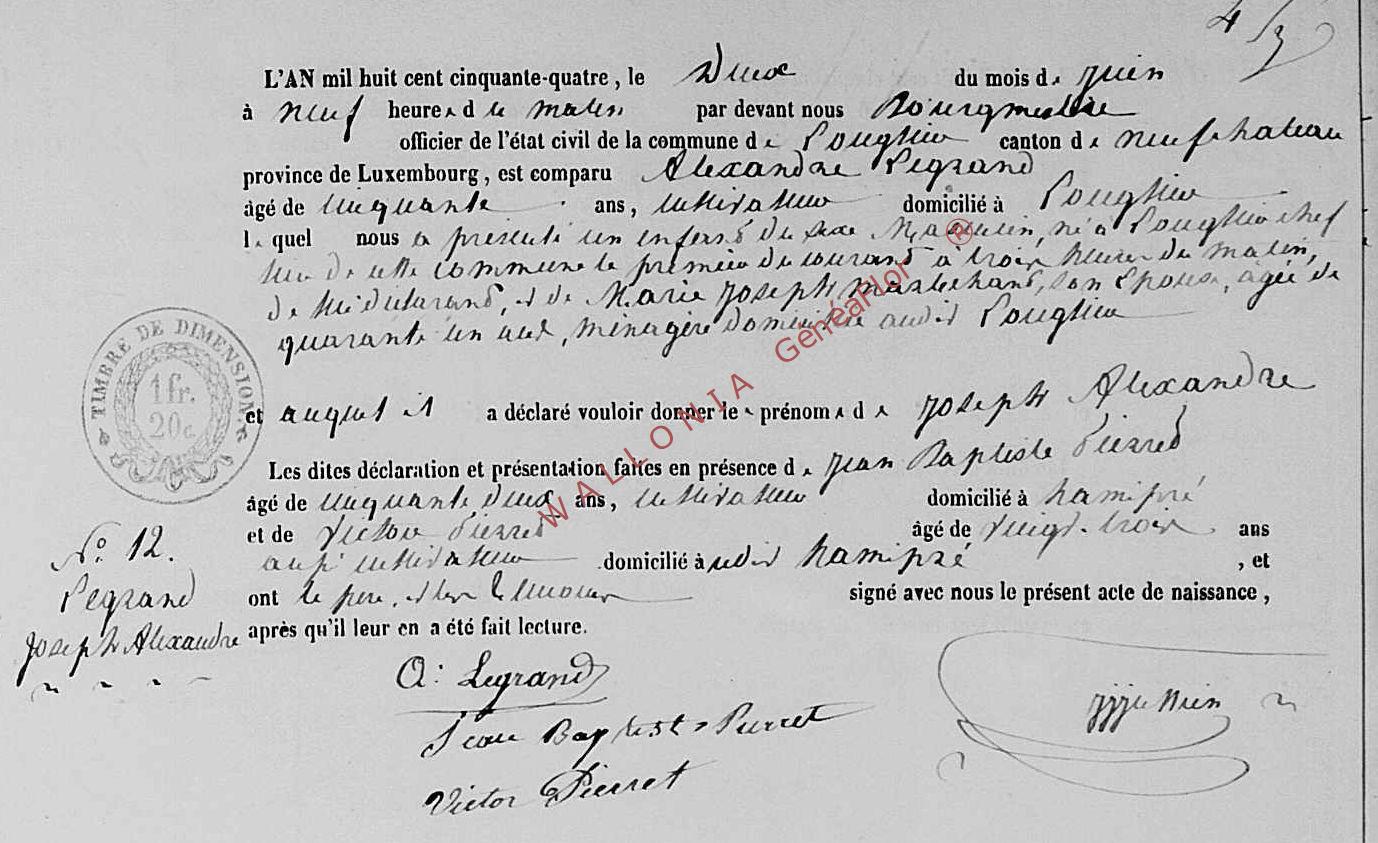 L'AN mil huit cent cinquante-quatre, le Deux du mois de Juin
à neuf heures du matin par devant nous Bourgmestre
officier de l'état civil de la commune de Longlier canton de neufchateau
province de Luxembourg, est comparu Alexandre Legrand
âgé de cinquante ans, cultivateur domicilié à Longlier
le quel nous a présenté un enfant du sexe Masculin, né à Longlier chef
lieu de cette commune le premier du courant à trois heures du matin,
de lui déclarant, et de Marie Joseph son épouse, agée de
quarante un ans, ménagère domiciliée audit Longlier
et auquel il a déclaré vouloir donner les prénoms de Joseph Alexandre
Les dites déclaration et présentation faites en présence de Jean Baptiste Pierret
âgé de cinquante deux ans, cultivateur domicilié à hamipré
et de Victor Pierret âgé de vingt-trois ans
aussi cultivateur domicilié à udit hamipré, et
ont le père et les témoins signé avec nous le présent acte de naissance,
après qu'il leur en a été fait lecture.
TIMBRE DE DIMENSION
1 fr.
20 c.
No. 12.
Legrand
Joseph Alexandre
A: Legrand
Jean Baptiste Pierret
Victor Pierret
WALLONIA GénéaFlor ®